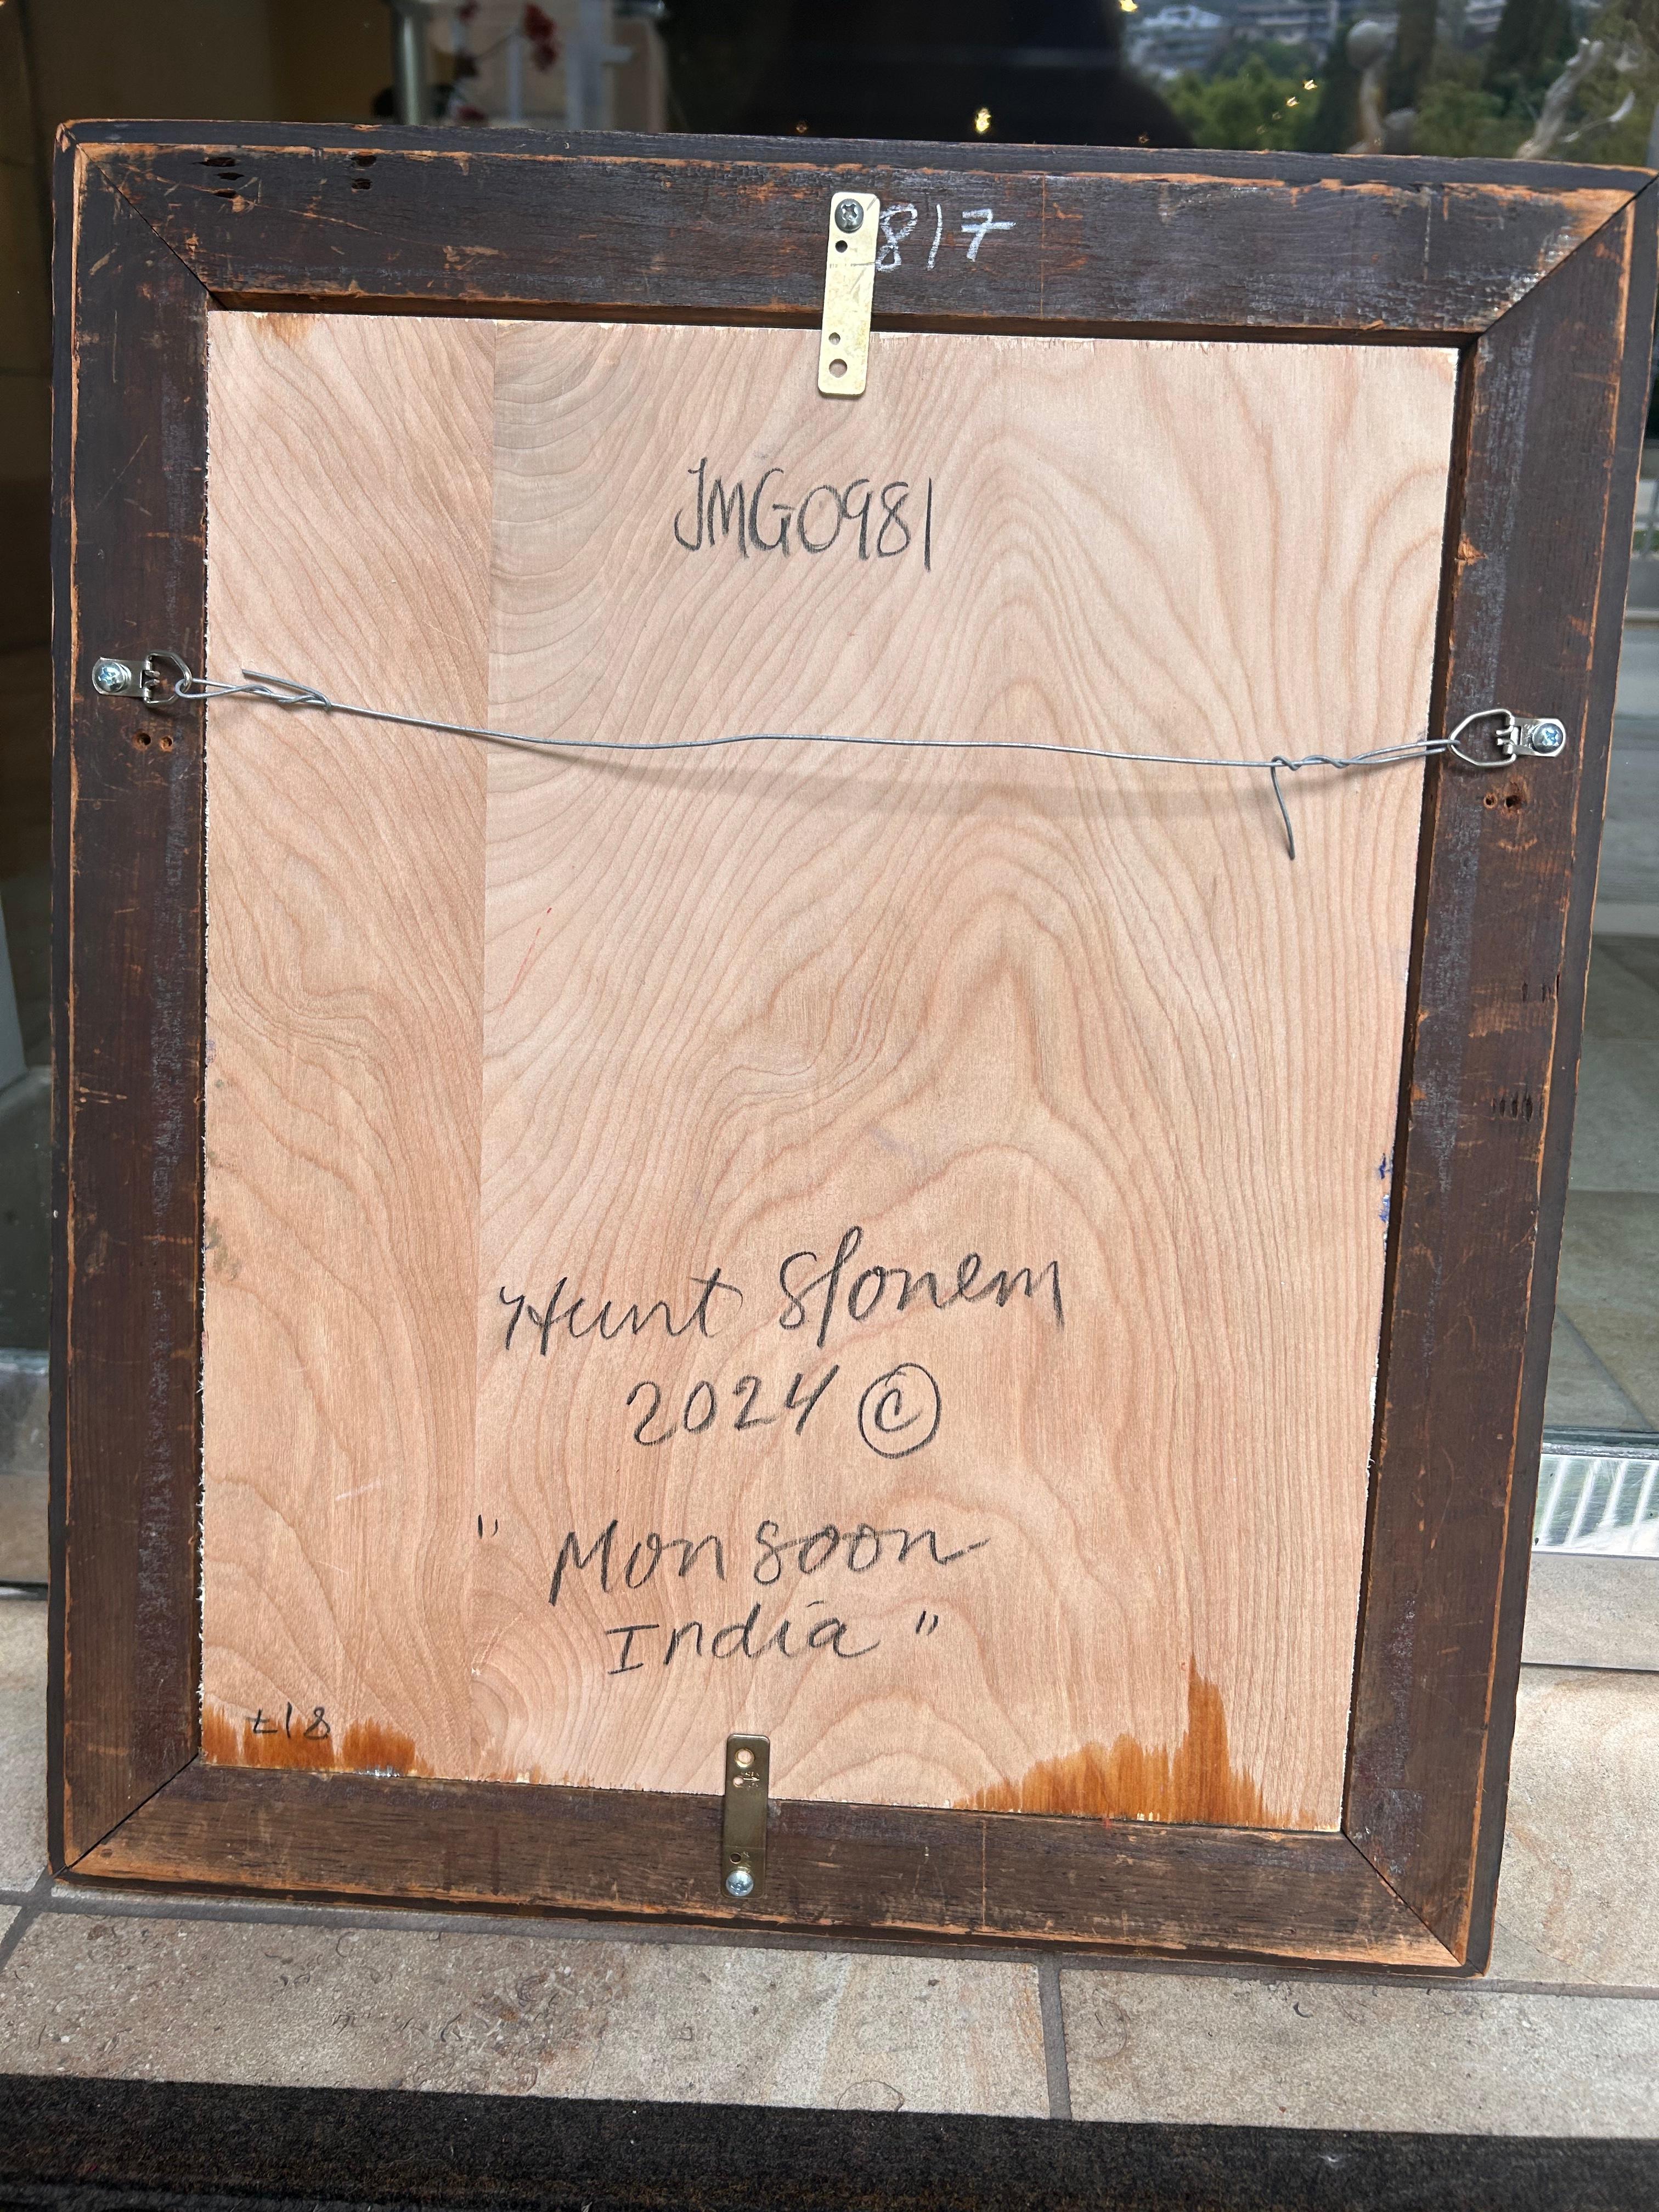 817
JMG0981
Hunt Slonem
2024 ©
" Monsoon
India "
817